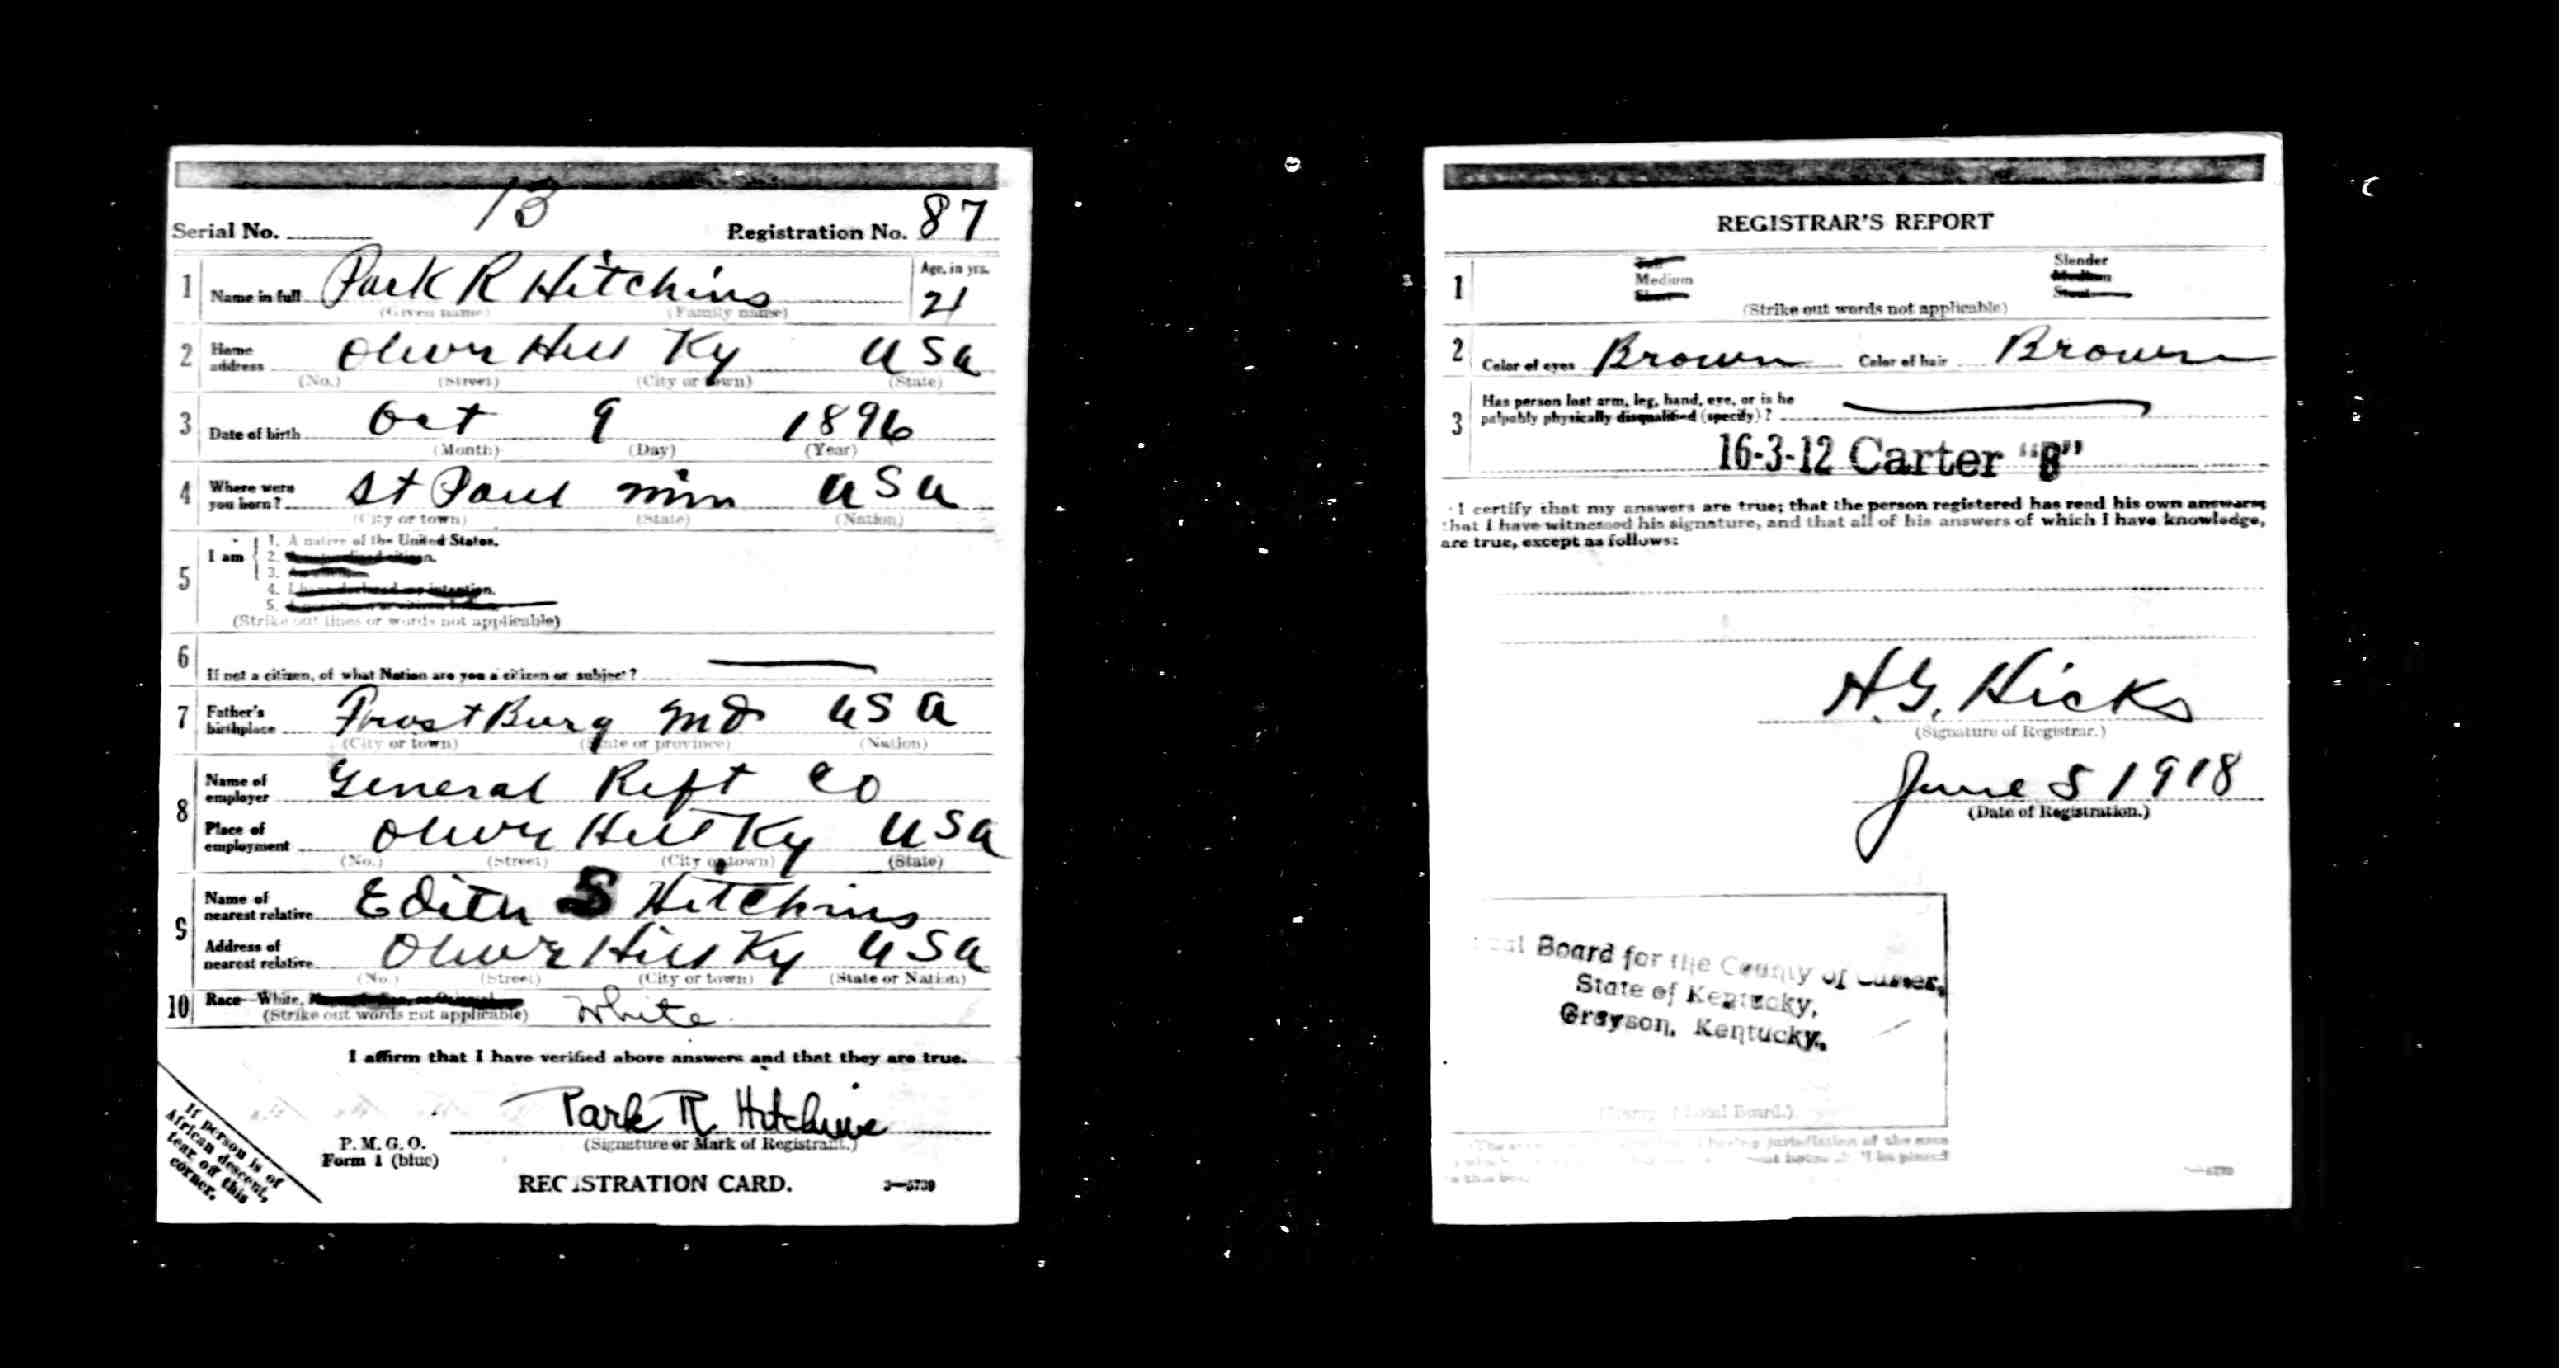 13
Serial No. Registration No. 87
1 Name in full Park R Hitchins Age, in yrs. 21
(Given name) (Family name)
2 Home address Olive Hill Ky USA
(No.) (Street) (City or town) (State)
3 Date of birth Oct 9 1896
(Month) (Day) (Year)
4 Where were you born? St Paul Minn USA
(City or town) (State) (Nation)
5 I am
1. A native of the United States.
2. citizen.
3.
4. intention.
5.
(Strike out lines or words not applicable)
6 If not a citizen, of what Nation are you a citizen or subject?
7 Father's birthplace Frost Burg Md USA
(City or town) (State or province) (Nation)
8 Name of employer General Reft Co
Place of employment Olive Hill Ky USA
(No.) (Street) (City or town) (State)
9 Name of nearest relative Edith S Hitchins
Address of nearest relative Olive Hill Ky USA
(No.) (Street) (City or town) (State or Nation)
10 Race—White, White
(Strike out words not applicable)
I affirm that I have verified above answers and that they are true.
Park R Hitchins
(Signature or Mark of Registrant.)
P. M. G. O.
Form 1 (blue)
REGISTRATION CARD. 3—5739
If person is of
African descent,
tear off this
corner.
REGISTRAR'S REPORT
1 Tall Slender
Medium Medium
Short Stout
(Strike out words not applicable)
2 Color of eyes Brown Color of hair Brown
3 Has person lost arm, leg, hand, eye, or is he
palpably physically disqualified (specify)?
16-3-12 Carter "B"
I certify that my answers are true; that the person registered has read his own answers;
that I have witnessed his signature, and that all of his answers of which I have knowledge,
are true, except as follows:
H. G. Hicks
(Signature of Registrar.)
June 5 1918
(Date of Registration.)
Local Board for the County of Carter,
State of Kentucky,
Grayson, Kentucky.
(Stamp of Local Board.)
having jurisdiction of the area